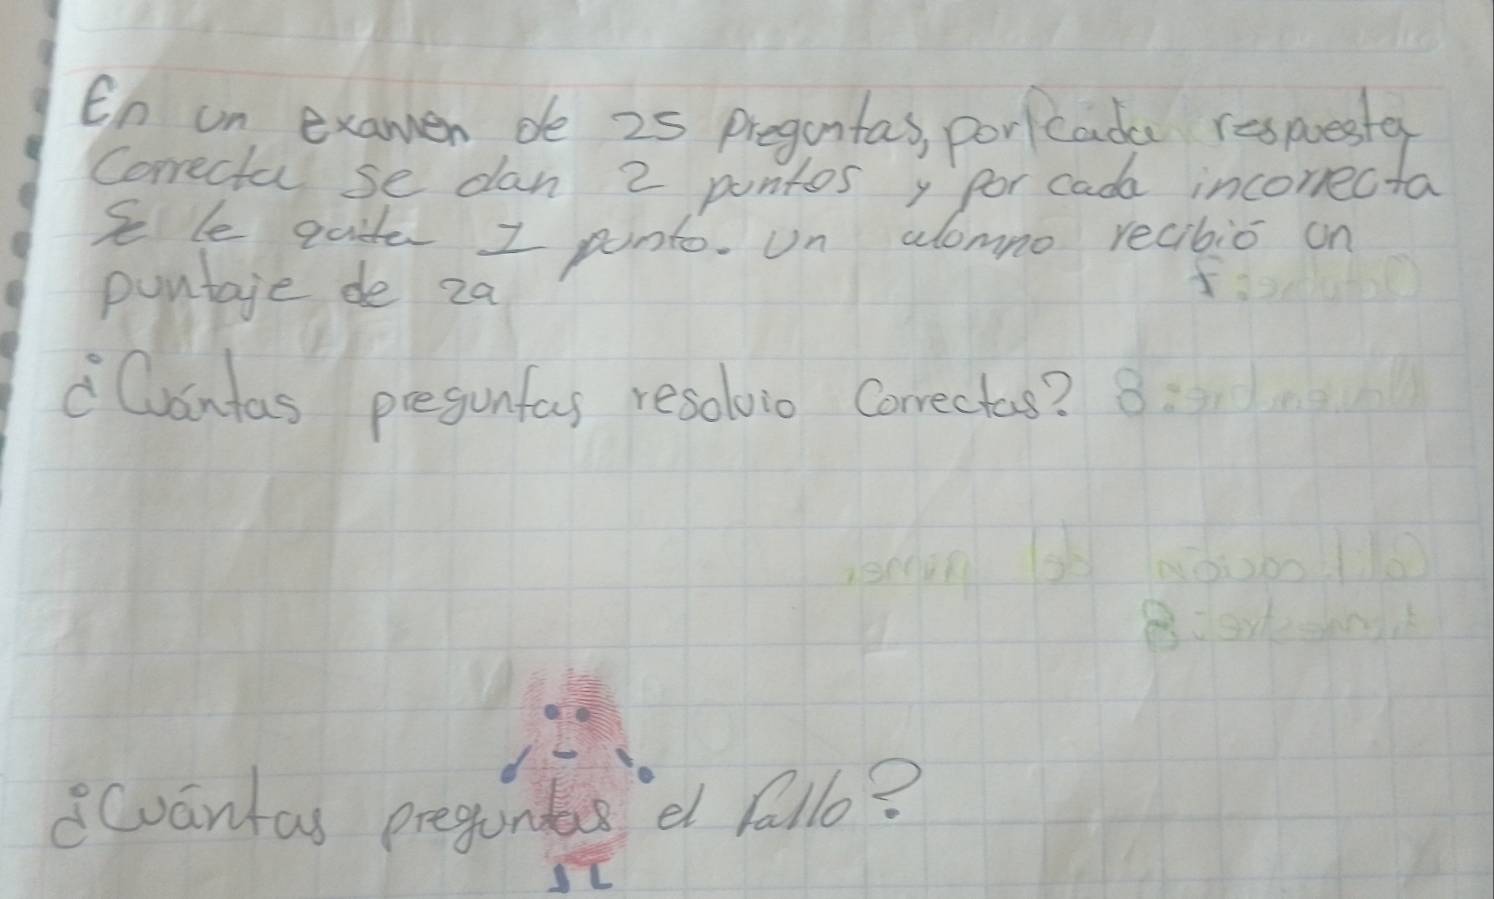 En un examen de 25 preguntas, por cada respuesta
Correcta se dan 2 puntos y por cada incorrecta
se le quita 1 punto. Un alomno recibió un
puntaje de 29
¿Cuántas preguntas resolvio Correctas?
¿Cuántas preguntas el fallo?